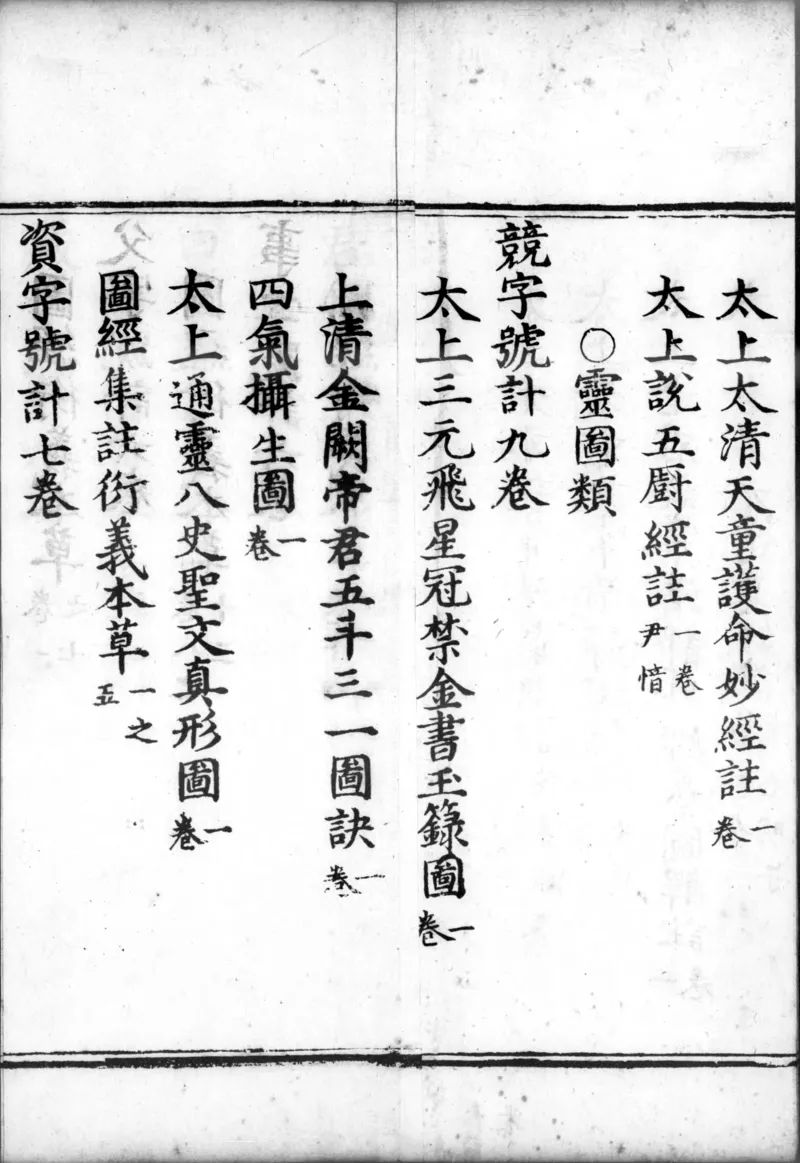 太上太清天童護命妙經註一卷
太上說五廚經註一卷尹愔
〇靈圖類
競字號計九卷
太上三元飛星冠禁金書玉籙圖一卷
上清金闕帝君五斗三一圖訣一卷
四氣攝生圖一卷
太上通靈八史聖文真形圖一卷
圖經集註衍義本草一之五
資字號計七卷